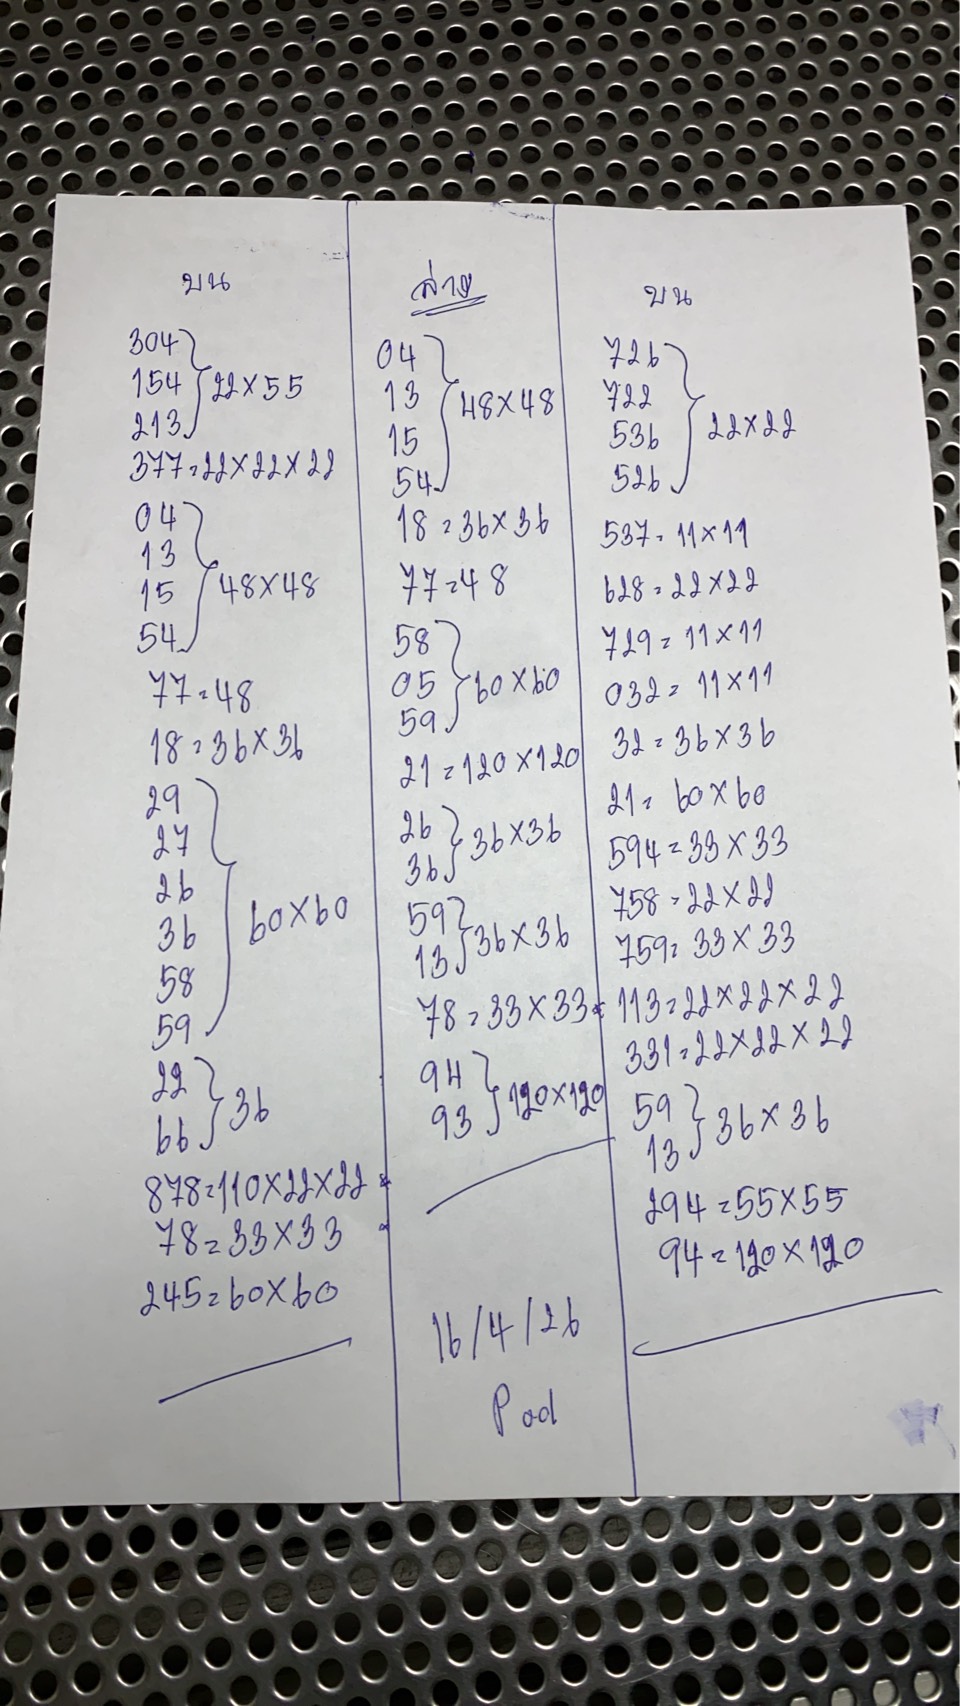 บน
304
154 } 22×55
213
377=22×22×22
04
13
15 } 48×48
54
77=48
18=36×36
29
27
26
36 } 60×60
58
59
22
66 } 36
878=110×22×22
78=33×33
245=60×60
ล่าง
04
13 } 48×48
15
54
18=36×36
77=48
58
05 } 60×60
59
21=120×120
26 } 36×36
36
59 } 36×36
13
78=33×33
94 } 120×120
93
16/4/26
Pod
บน
726
722
536 } 22×22
526
537=11×11
628=22×22
729=11×11
032=11×11
32=36×36
21=60×60
594=33×33
758=22×22
759=33×33
113=22×22×22
331=22×22×22
59 } 36×36
13
294=55×55
94=120×120